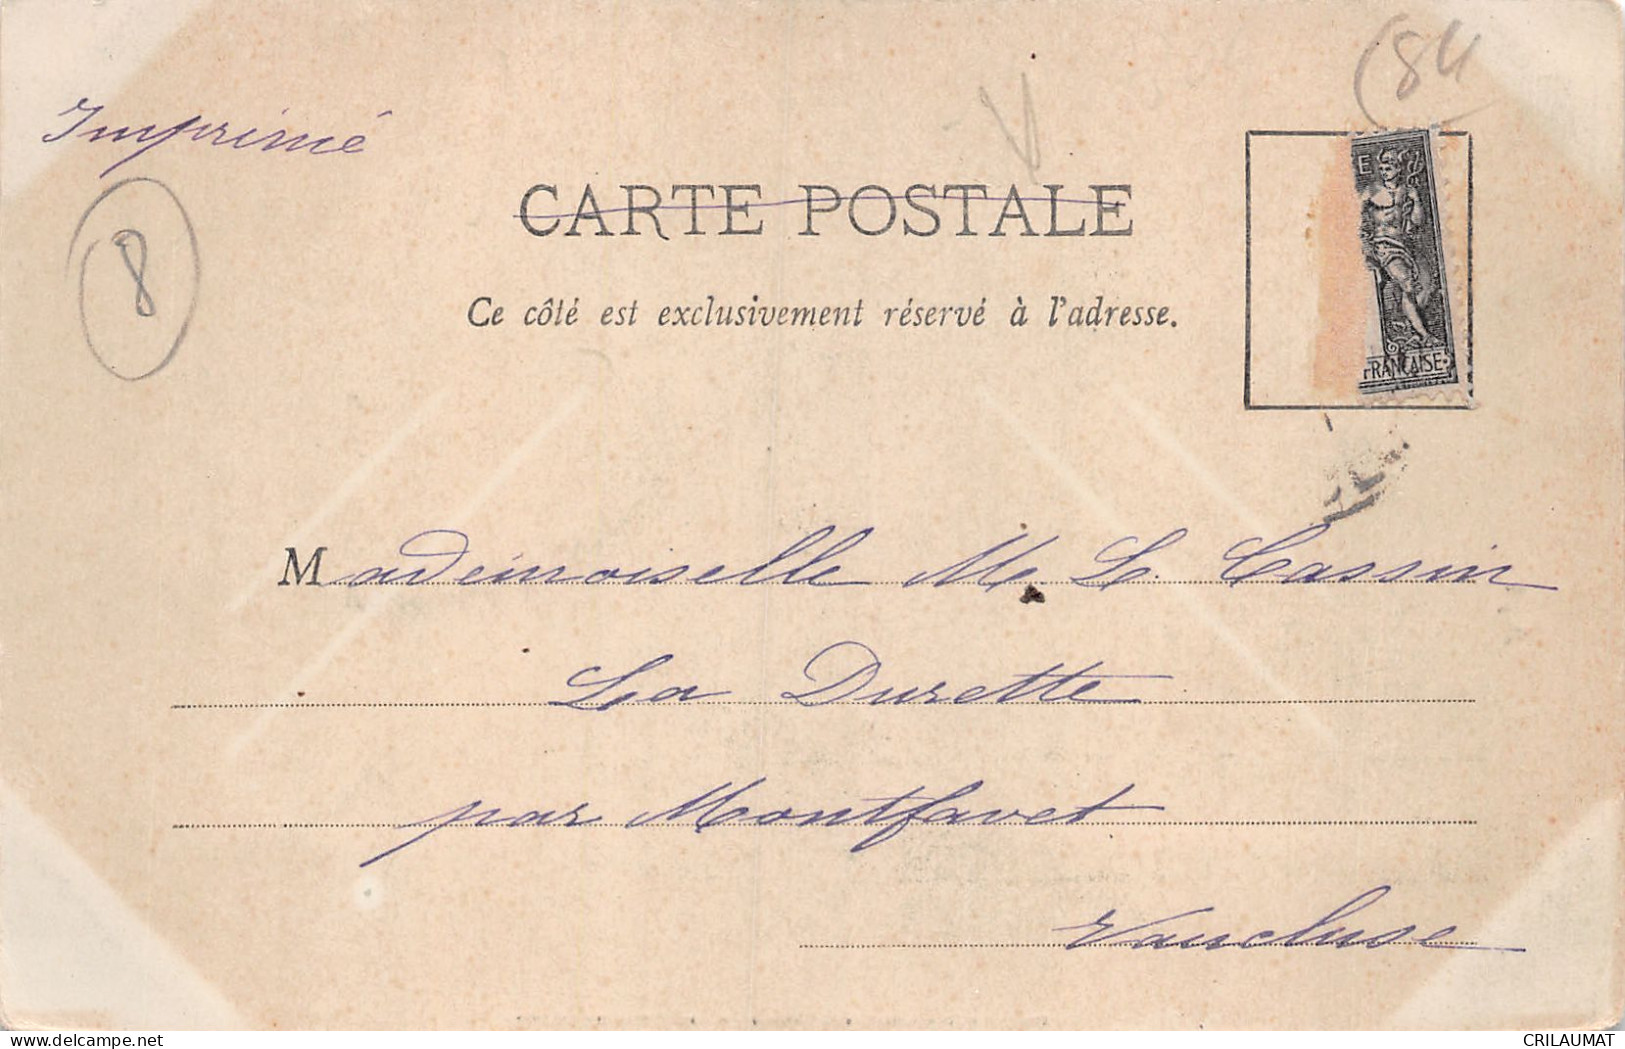 (84
Imprimé
8
CARTE POSTALE
E
FRANÇAISE
Ce côté est exclusivement réservé à l'adresse.
Mademoiselle M. L. Cassin
La Durette
par Montfavet
Vaucluse
delcampe.net
CRILAUMAT